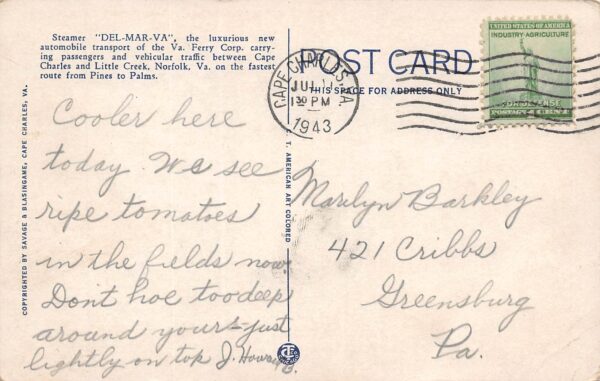 Steamer "DEL-MAR-VA", the luxurious new
automobile transport of the Va. Ferry Corp. carry-
ing passenger and vehicular traffic between Cape
Charles and Little Creek, Norfolk, Va. on the fastest
route from Pines to Palms.
POST CARD
THIS SPACE FOR ADDRESS ONLY
CAPE CHARLES, VA.
JUL
1 30 PM
1943
UNITED STATES OF AMERICA
INDUSTRY-AGRICULTURE
FOR DEFENSE
POSTAGE 1 CENT
COPYRIGHTED BY SAVAGE & BLASINGAME, CAPE CHARLES, VA.
C. T. AMERICAN ART COLORED
Cooler here
today. We see
ripe tomatoes
in the fields now.
Dont hoe too deep
around yours–just
lightly on top J. Howard
Marilyn Barkley
421 Cribbs
Greensburg
Pa.